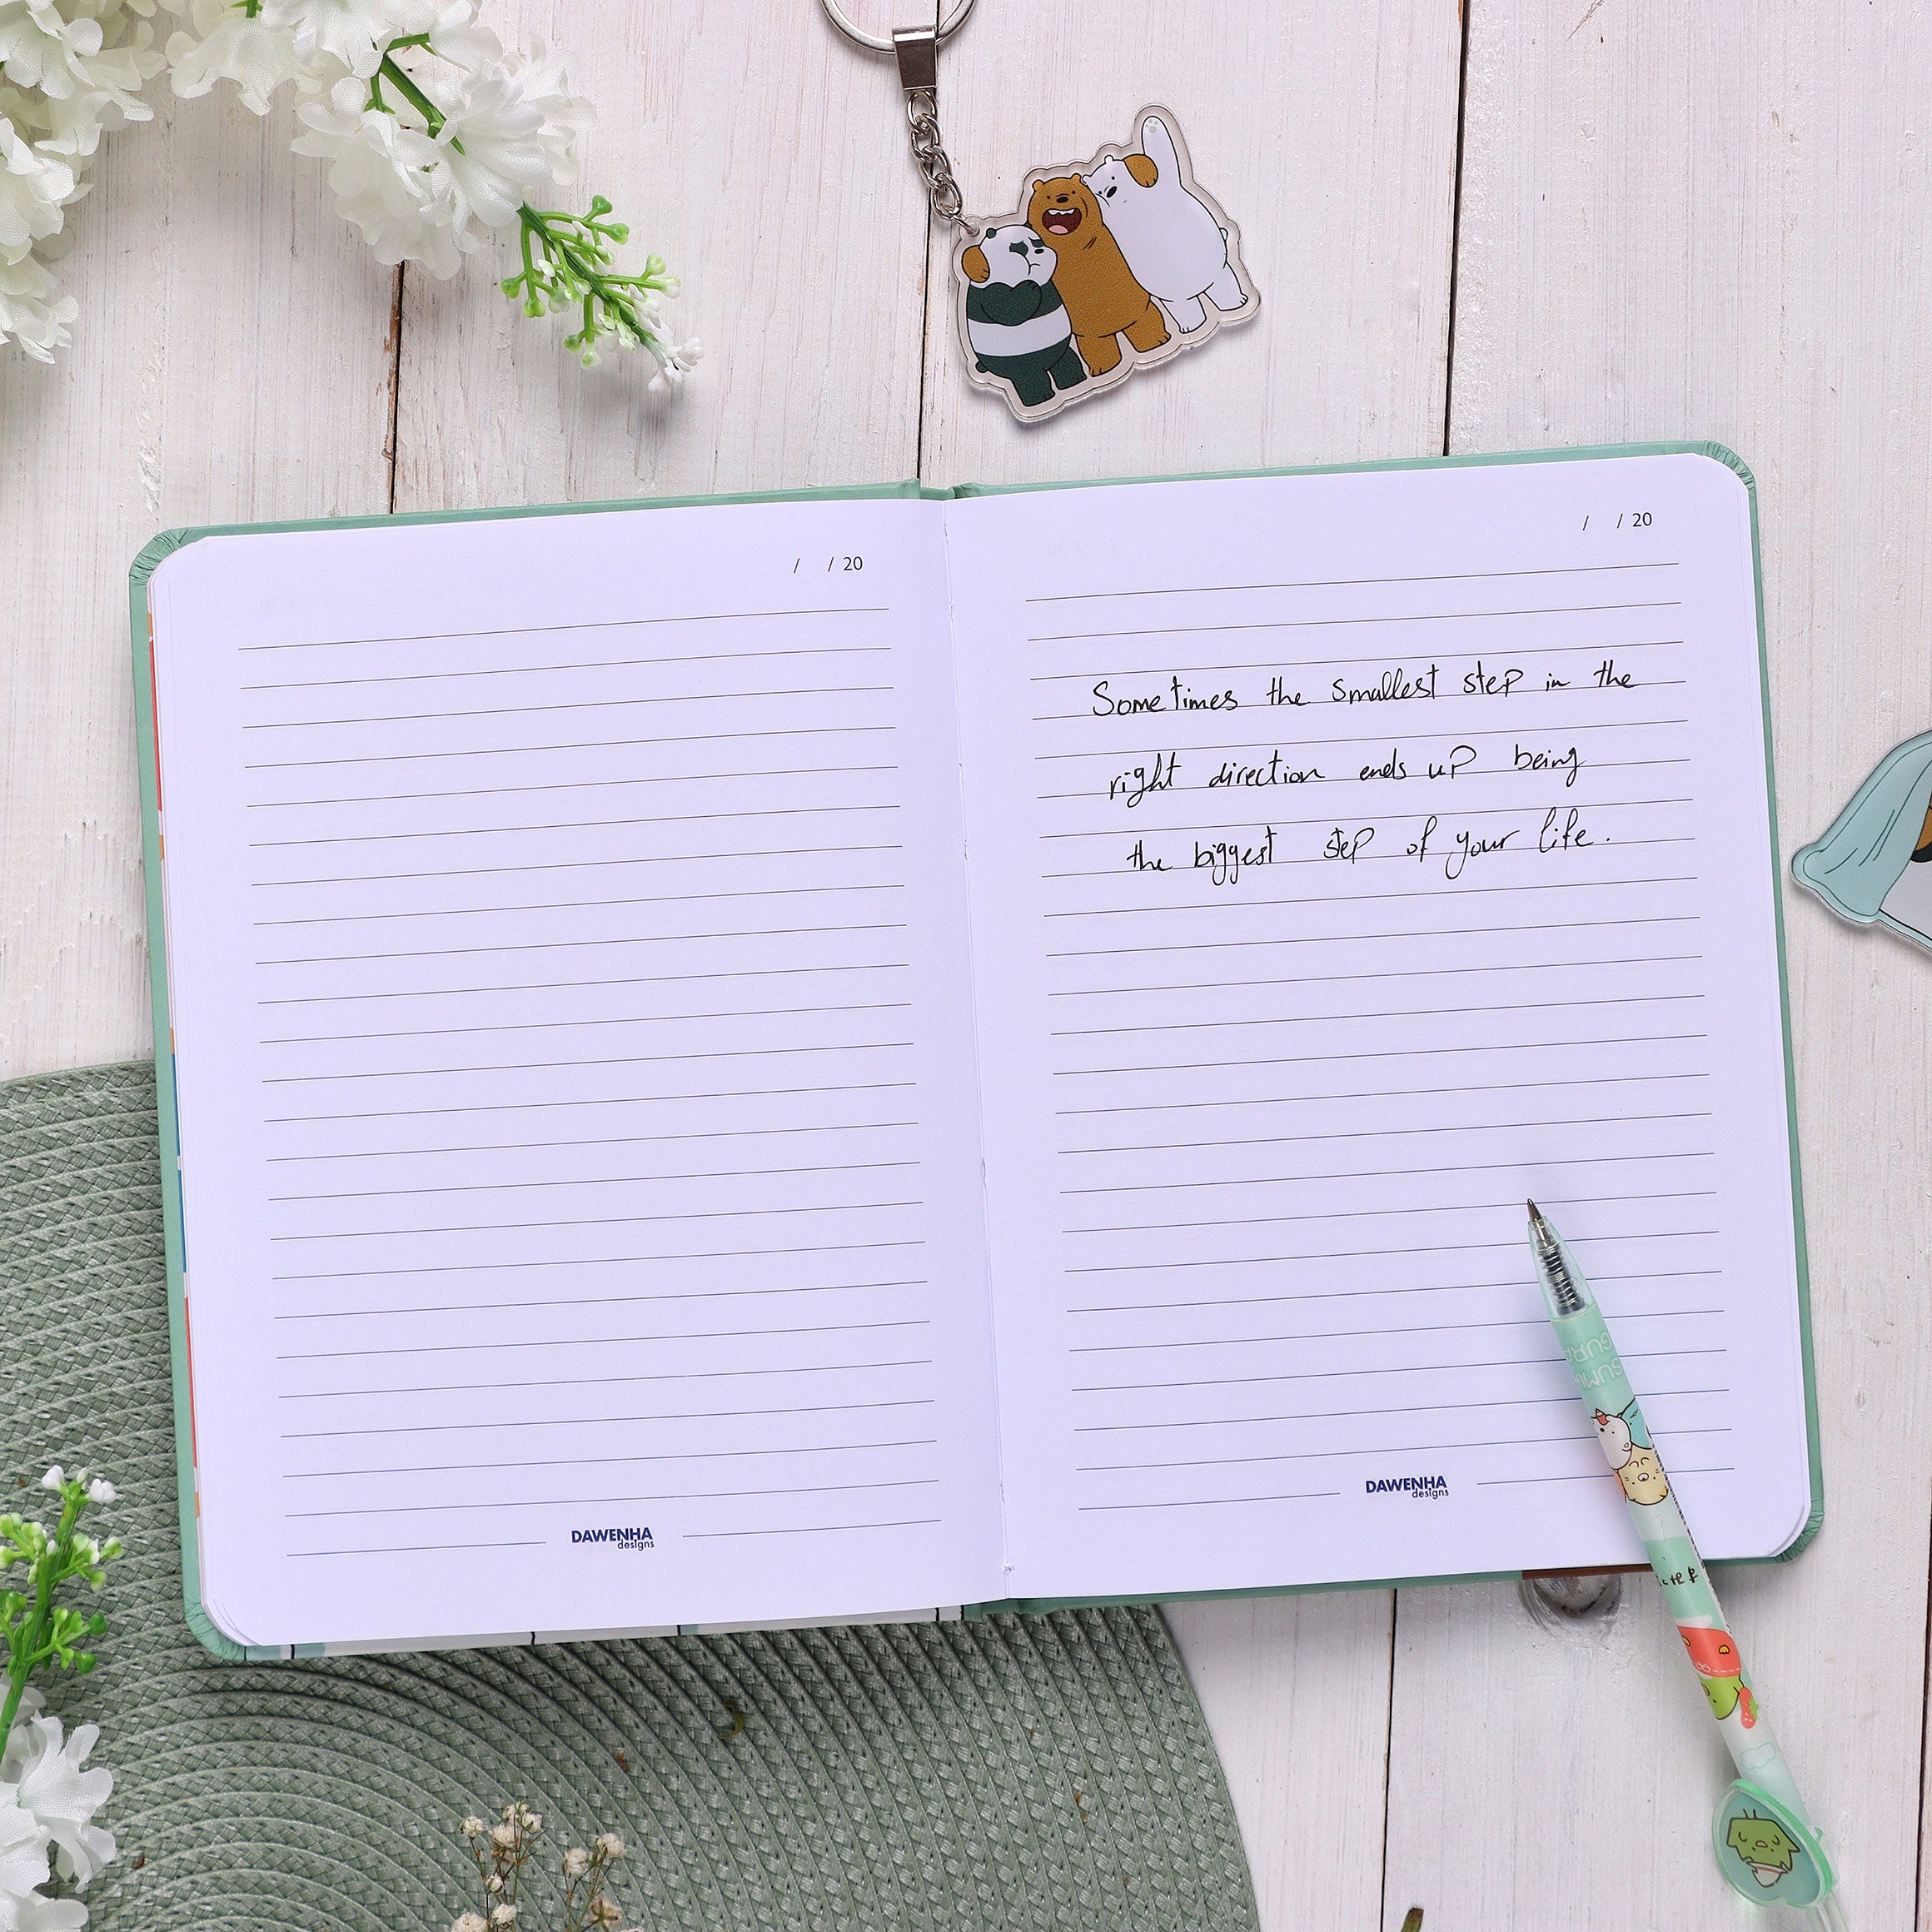 / / 20
/ / 20
Sometimes the smallest step in the
right direction ends up being
the biggest step of your life.
DAWENHA
designs
DAWENHA
designs